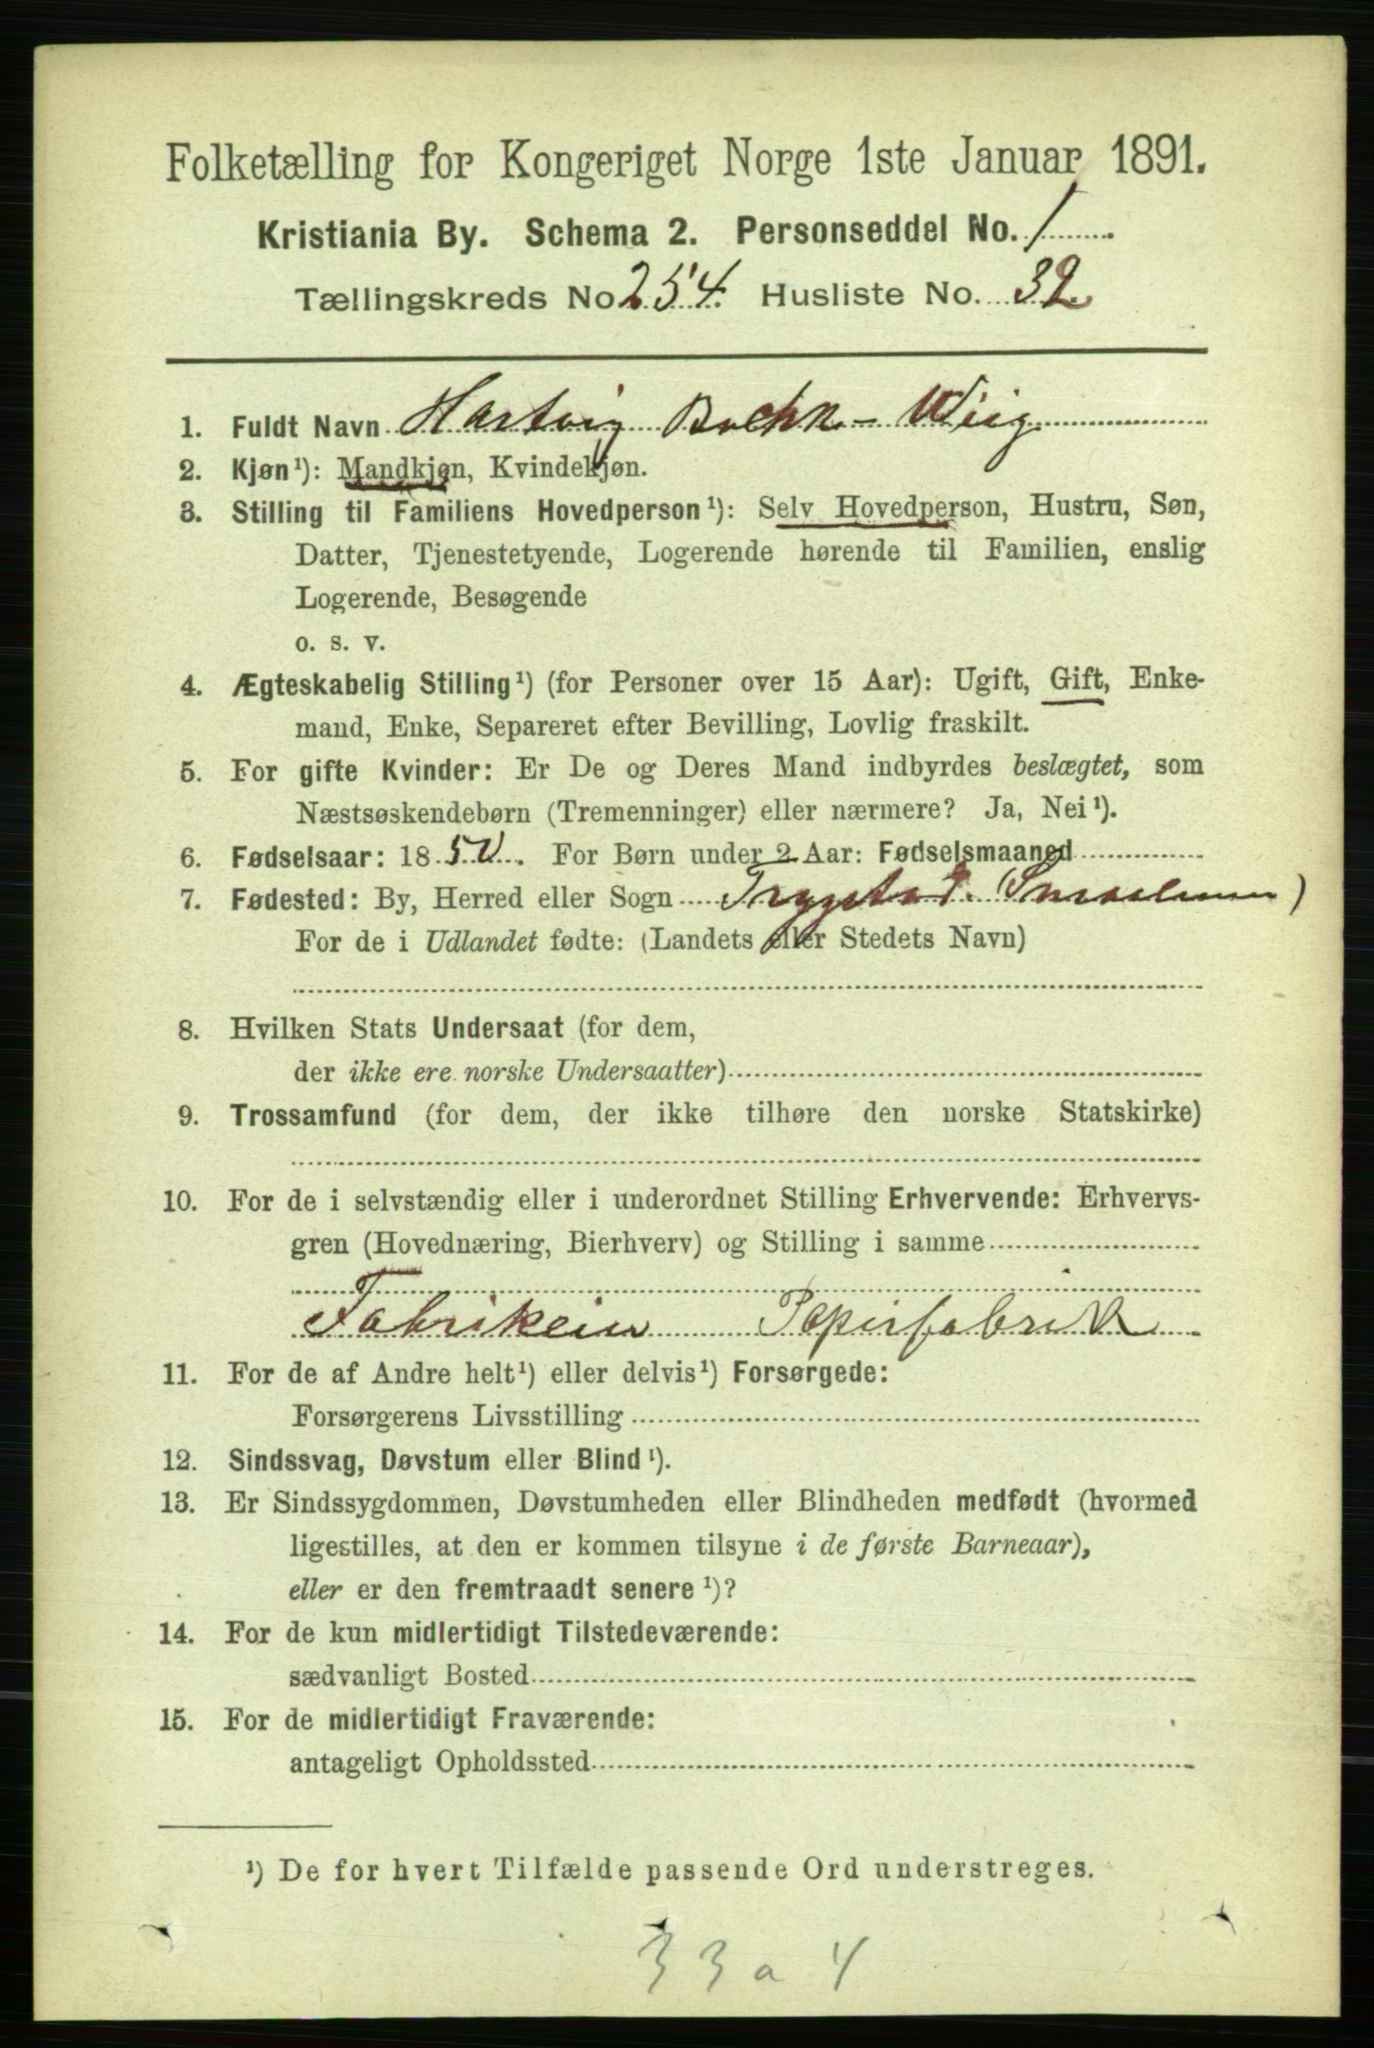 Folketælling for Kongeriget Norge 1ste Januar 1891.
Kristiania By. Schema 2. Personseddel No. 1
Tællingskreds No 254. Husliste No. 32.
1. Fuldt Navn Hartvig Bache-Wiig
2. Kjøn¹): Mandkjøn, Kvindekjøn.
3. Stilling til Familiens Hovedperson¹): Selv Hovedperson, Hustru, Søn,
Datter, Tjenestetyende, Logerende hørende til Familien, enslig
Logerende, Besøgende
o. s. v.
4. Ægteskabelig Stilling¹) (for Personer over 15 Aar): Ugift, Gift, Enke-
mand, Enke, Separeret efter Bevilling, Lovlig fraskilt.
5. For gifte Kvinder: Er De og Deres Mand indbyrdes beslægtet, som
Næstsøskendebørn (Tremenninger) eller nærmere? Ja, Nei¹).
6. Fødselsaar: 1850. For Børn under 2 Aar: Fødselsmaaned
7. Fødested: By, Herred eller Sogn Trygstad. (Smaalenene)
For de i Udlandet fødte: (Landets eller Stedets Navn)
8. Hvilken Stats Undersaat (for dem,
der ikke ere norske Undersaatter)
9. Trossamfund (for dem, der ikke tilhøre den norske Statskirke)
10. For de i selvstændig eller i underordnet Stilling Erhvervende: Erhvervs-
gren (Hovednæring, Bierhverv) og Stilling i samme
Fabrikeier Papirfabrik
11. For de af Andre helt¹) eller delvis¹) Forsørgede:
Forsørgerens Livsstilling
12. Sindssvag, Døvstum eller Blind¹).
13. Er Sindssygdommen, Døvstumheden eller Blindheden medfødt (hvormed
ligestilles, at den er kommen tilsyne i de første Barneaar),
eller er den fremtraadt senere¹)?
14. For de kun midlertidigt Tilstedeværende:
sædvanligt Bosted
15. For de midlertidigt Fraværende:
antageligt Opholdssted
¹) De for hvert Tilfælde passende Ord understreges.
33 a 4